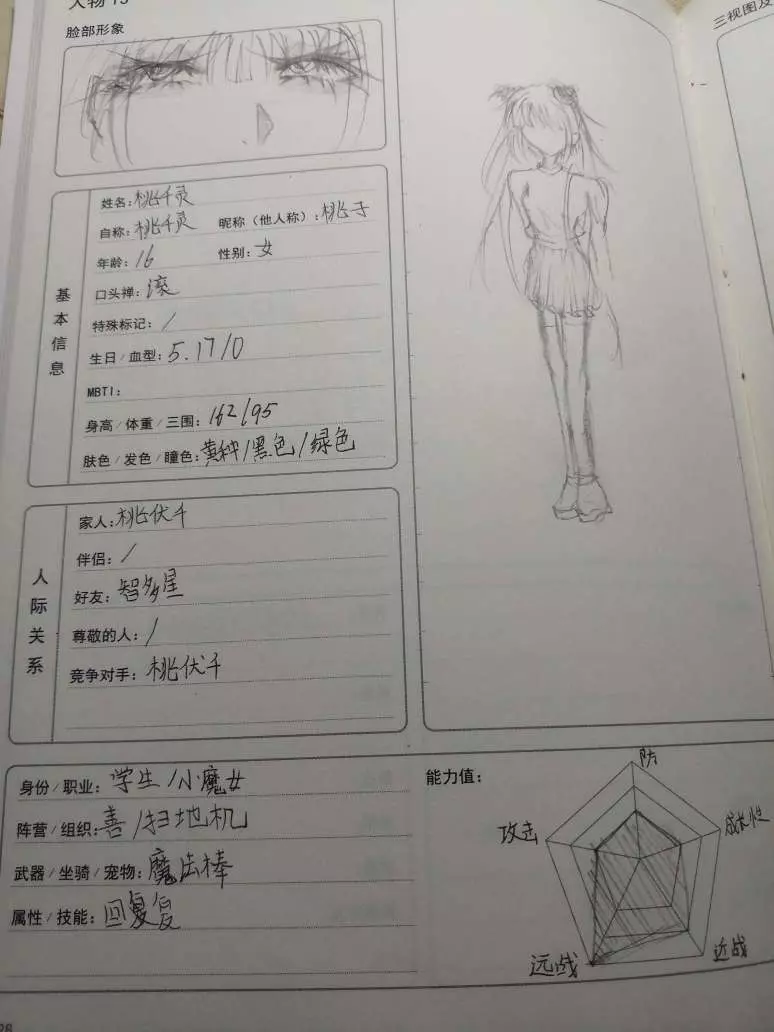 人物
三视图及
脸部形象
姓名：桃千灵
自称：桃千灵 昵称（他人称）：桃子
年龄：16 性别：女
口头禅：滚
特殊标记：/
生日/血型：5.17/O
MBTI：
身高/体重/三围：162/95
肤色/发色/瞳色：黄种/黑色/绿色
基本信息
家人：桃伏千
伴侣：/
好友：智多星
尊敬的人：/
竞争对手：桃伏千
人际关系
身份/职业：学生/小魔女
阵营/组织：善/扫地机
武器/坐骑/宠物：魔法棒
属性/技能：回复
能力值：
防
攻击
成长性
远战
近战